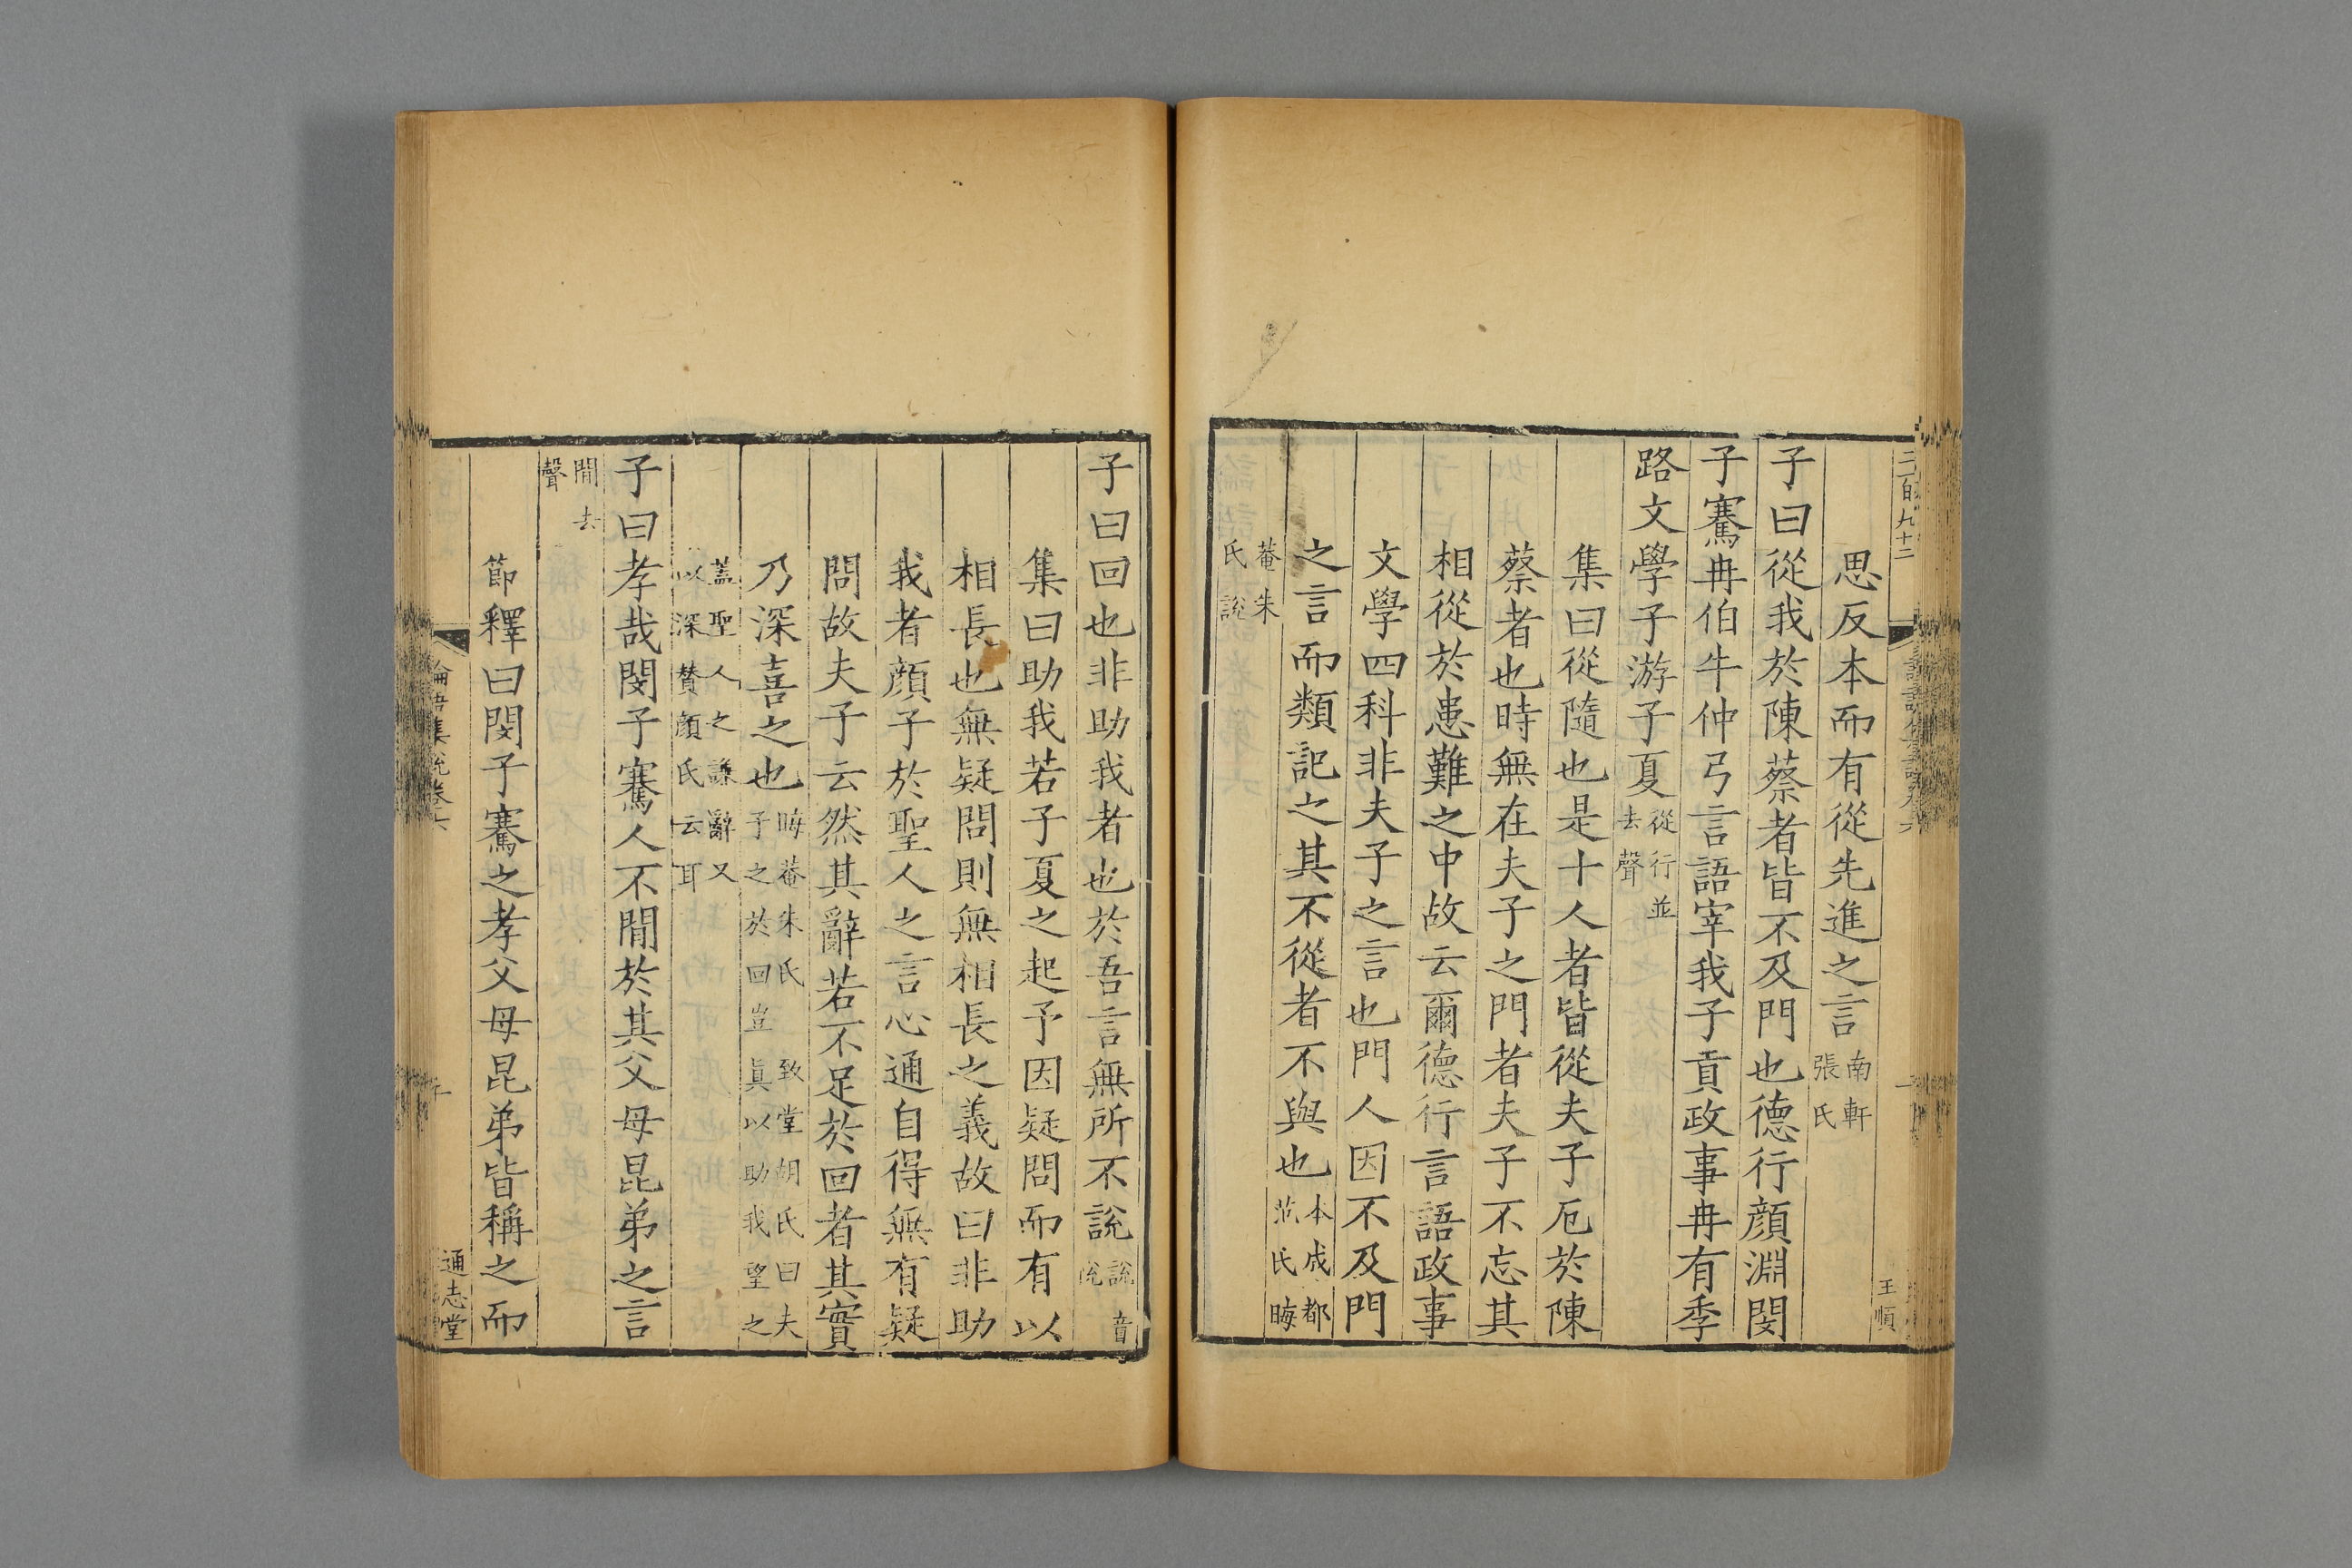 三百九十二
王順
思反本而有從先進之言南軒張氏
子曰從我於陳蔡者皆不及門也德行顏淵閔
子騫冉伯牛仲弓言語宰我子貢政事冉有季
路文學子游子夏從行並去聲
集曰從隨也是十人者皆從夫子厄於陳
蔡者也時無在夫子之門者夫子不忘其
相從於患難之中故云爾德行言語政事
文學四科非夫子之言也門人因不及門
之言而類記之其不從者不與也本成都范氏晦
菴朱氏說
子曰回也非助我者也於吾言無所不說說音悅
集曰助我若子夏之起予因疑問而有以
相長也無疑問則無相長之義故曰非助
我者顏子於聖人之言心通自得無有疑
問故夫子云然其辭若不足於回者其實
乃深喜之也晦菴朱氏 致堂胡氏曰夫子之於回豈真以助我望之
蓋聖人之謙辭又以深贊顏氏云耳
子曰孝哉閔子騫人不間於其父母昆弟之言
間去聲
節釋曰閔子騫之孝父母昆弟皆稱之而
論語集說卷六
通志堂